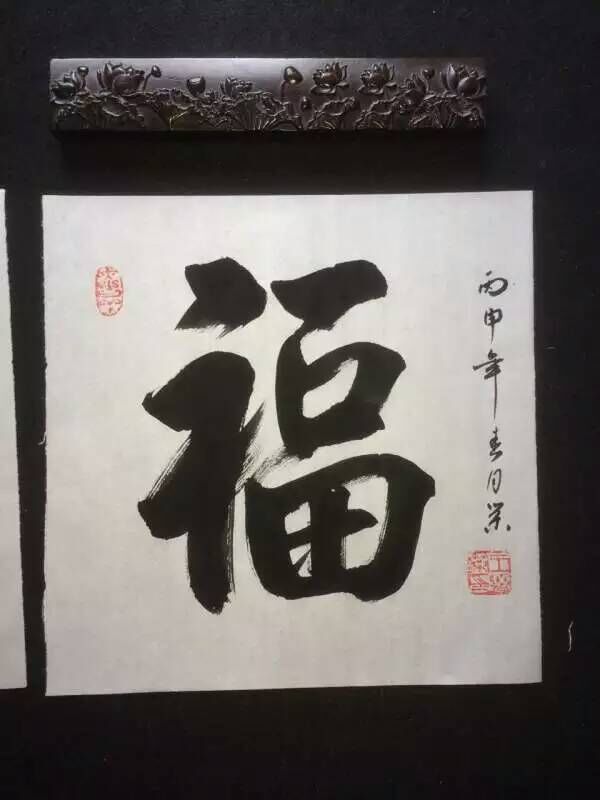 福
丙申年春月荣